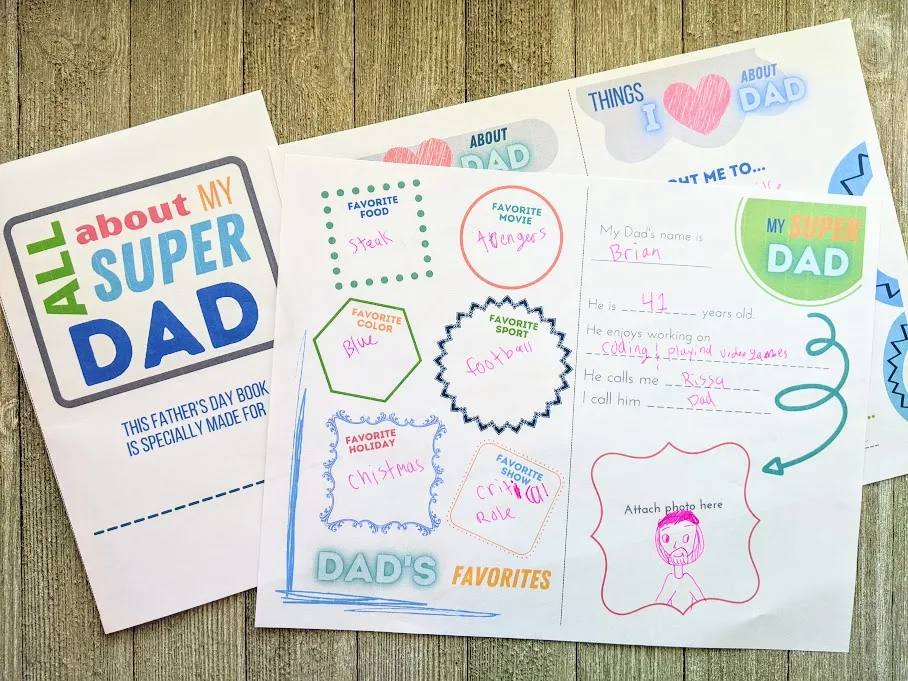 ALL about MY
SUPER
DAD
THIS FATHER'S DAY BOOK
IS SPECIALLY MADE FOR
ABOUT
DAD
THINGS
I
ABOUT
DAD
ME TO...
FAVORITE
FOOD
Steak
FAVORITE
MOVIE
Avengers
FAVORITE
COLOR
Blue
FAVORITE
SPORT
football
FAVORITE
HOLIDAY
Chistmas
FAVORITE
SHOW
Critical
Role
DAD'S FAVORITES
MY SUPER
DAD
My Dad's name is
Brian
He is 41 years old.
He enjoys working on
coding & playind videogames
He calls me Rissa
I call him Dad
Attach photo here